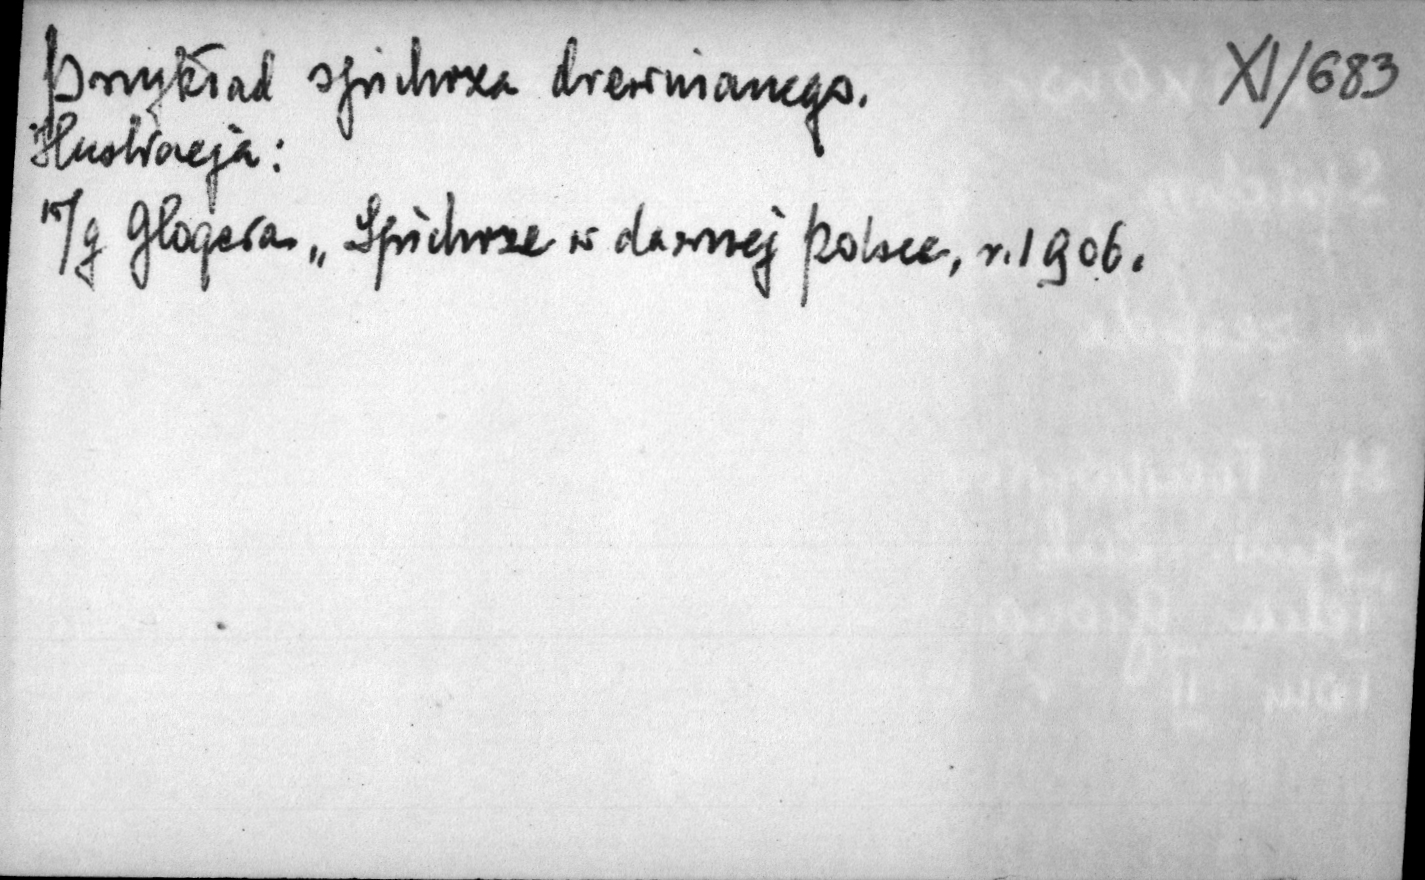 Przykład spichrza drewnianego. XI/683
Ilustracja:
w/g Glogera „Spichrze w dawnej Polsce, r. 1906.